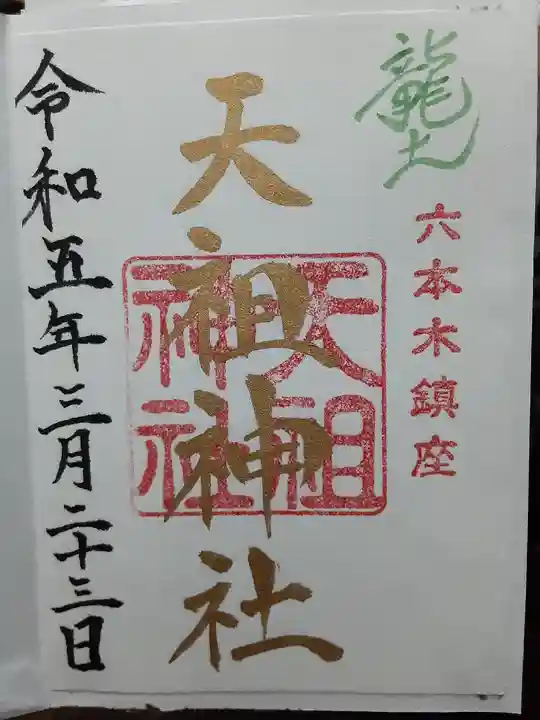 龍土
六本木鎮座
天祖神社
天祖神社
令和五年三月二十三日